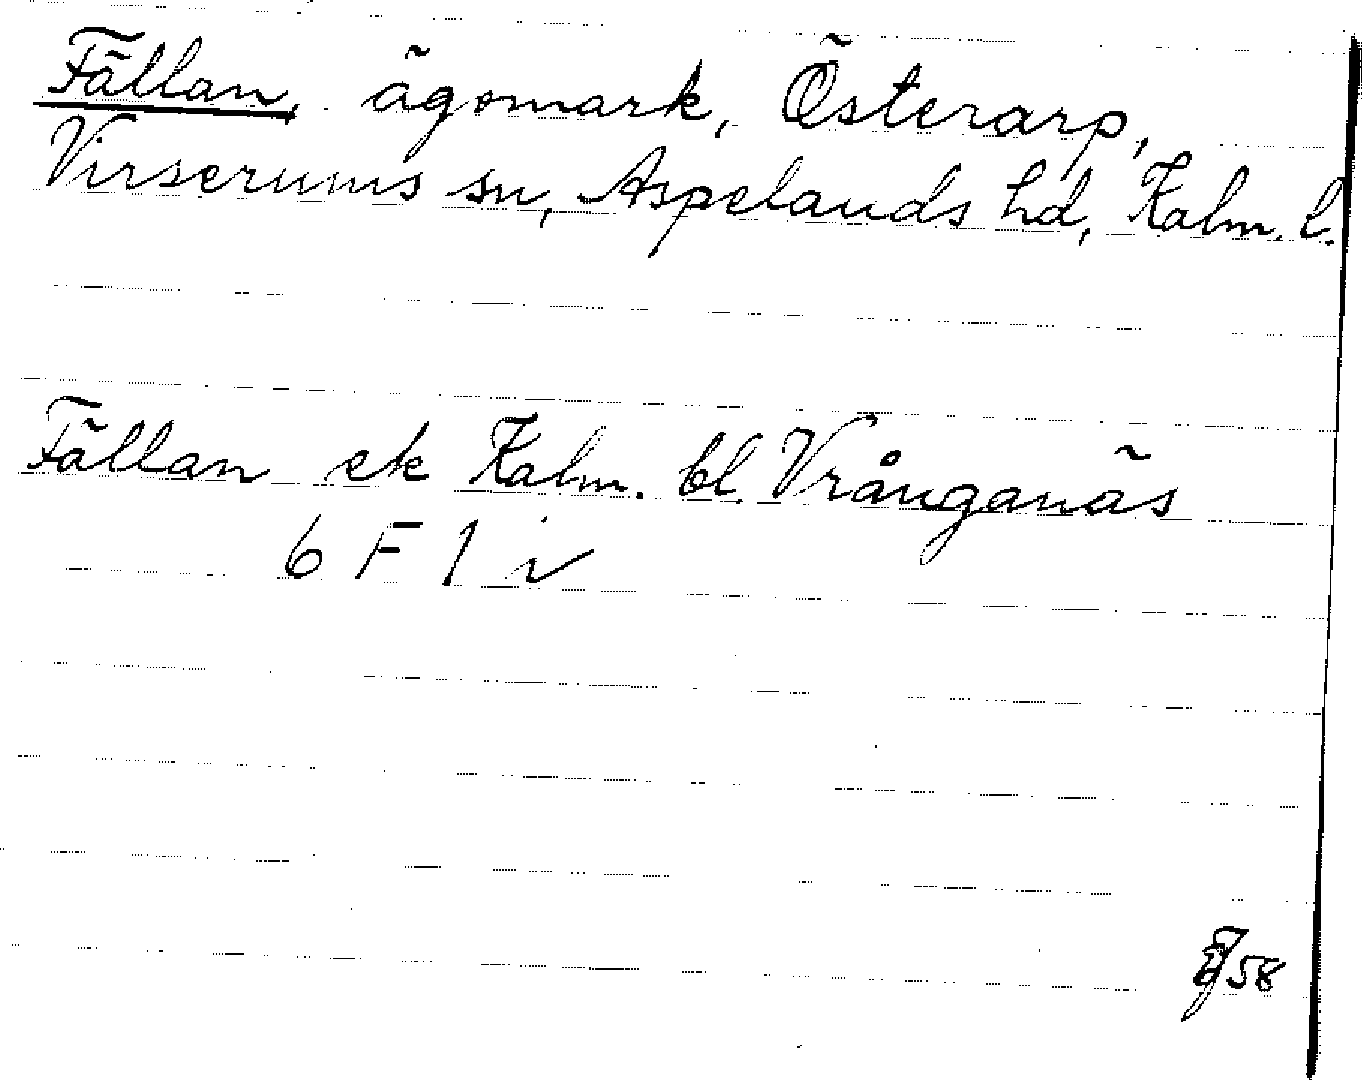 Fällan, ägomark, Österarp,
Virserums sn, Aspelands hd, Kalm. l.
Fällan ek Kalm. bl. Vrånganäs
6 F 1 i
58